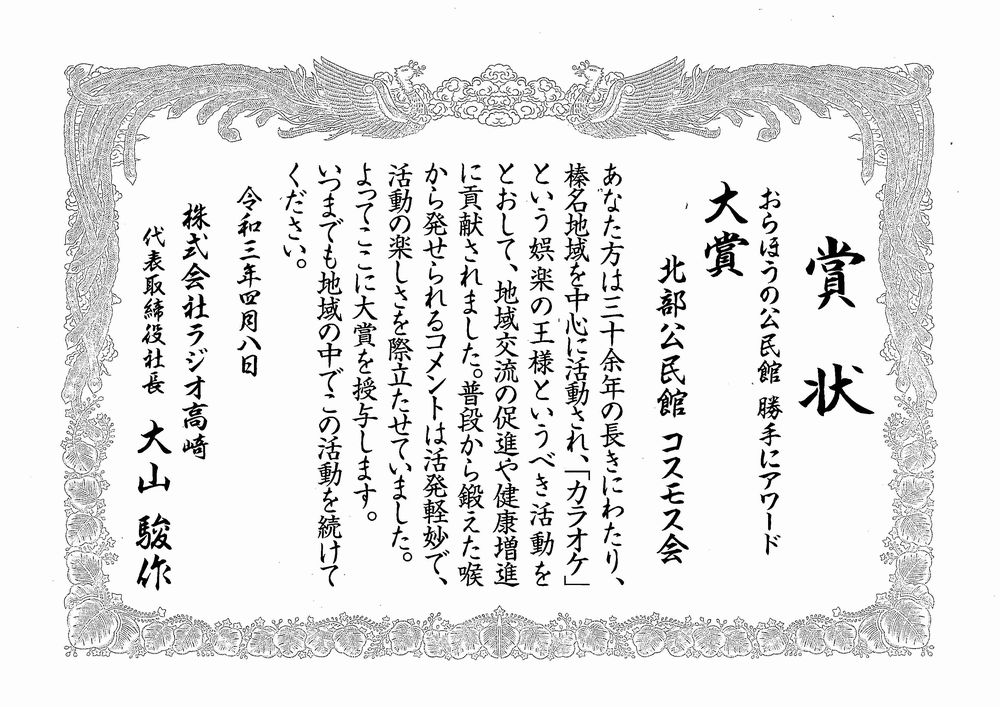 賞状
おらほうの公民館 勝手にアワード
大賞
北部公民館 コスモス会
あなた方は三十余年の長きにわたり、
榛名地域を中心に活動され、「カラオケ」
という娯楽の王様というべき活動を
とおして、地域交流の促進や健康増進
に貢献されました。普段から鍛えた喉
から発せられるコメントは活発軽妙で、
活動の楽しさを際立たせていました。
よってここに大賞を授与します。
いつまでも地域の中でこの活動を続けて
ください。
令和三年四月八日
株式会社ラジオ高崎
代表取締役社長 大山 駿作